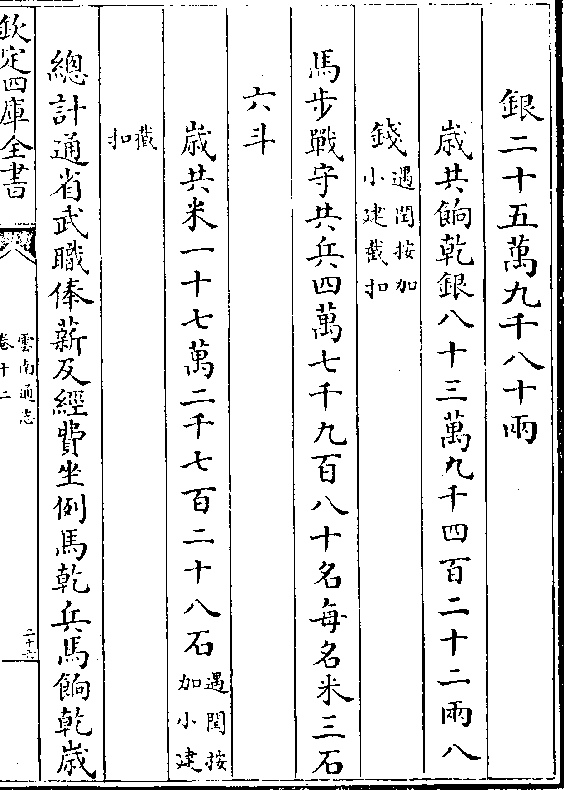 銀二十五萬九千八十兩
歲共餉乾銀八十三萬九千四百二十二兩八
錢遇閏按加
小建截扣
馬步戰守共兵四萬七千九百八十名每名米三石
六斗
歲共米一十七萬二千七百二十八石遇閏按
加小建
截
扣
總計通省武職俸薪及經費坐例馬乾兵馬餉乾歲
欽定四庫全書
雲南通志
卷十二
二十六